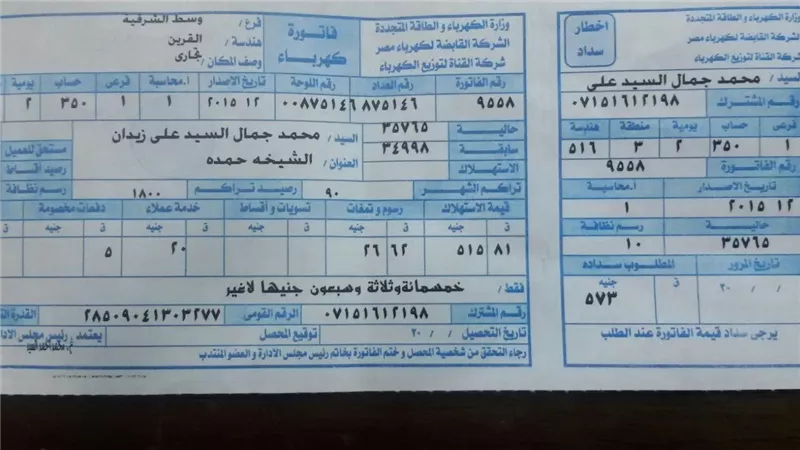 وزارة الكهرباء و الطاقة المتجددة
الشركة القابضة لكهرباء مصر
شركة القناة لتوزيع الكهرباء
فاتورة
كهرباء
فرع / وسط الشرقية
هندسة / القرين
وصف المكان / تجارى
رقم الفاتورة رقم العداد رقم اللوحة تاريخ الاصدار أ.محاسبة فرعى حساب يومية
٩٥٥٨ ٨٧٥١٤٦ ٠٠٨٧٥١٤٦ ٢٠١٥ ١٢ ١ ١ ٣٥٠ ٢
حالية ٣٥٧٦٥
سابقة ٣٤٩٩٨
الاستهلاك
السيد / محمد جمال السيد على زيدان
العنوان / الشيخه حمده
مستحق للعميل
رصيد أقساط
رسم نظافة
تراكم الشهر ٩٠ رصيد تراكم ١٨٠٠
قيمة الاستهلاك رسوم و تمغات تسويات و أقساط خدمة عملاء دفعات مخصومة
ق جنيه ق جنيه ق جنيه ق جنيه ق جنيه
٨١ ٥١٥ ٦٢ ٢٦ ٢٠ ٥
فقط / خمسمائة وثلاثة وسبعون جنيها لاغير
رقم المشترك ٠٧١٥١٦١٢١٩٨ الرقم القومى ٢٨٥٠٩٠٤١٣٠٣٢٧٧ القدرة
تاريخ التحصيل / / ٢٠ توقيع المحصل يعتمد رئيس مجلس الادا
رجاء التحقق من شخصية المحصل و ختم الفاتورة بخاتم رئيس مجلس الادارة و العضو المنتدب
اخطار
سداد
وزارة الكهرباء و الطاقة المتجددة
الشركة القابضة لكهرباء مصر
شركة القناة لتوزيع الكهرباء
السيد / محمد جمال السيد على
رقم المشترك ٠٧١٥١٦١٢١٩٨
فرعى حساب يومية منطقة هندسة
١ ٣٥٠ ٢ ٣ ٥١٦
رقم الفاتورة ٩٥٥٨
تاريخ الاصدار أ.محاسبة
٢٠١٥ ١٢ ١
حالية رسم نظافة
٣٥٧٦٥ ١٠
تاريخ المرور المطلوب سداده
/ / ٢٠ ق جنيه
٥٧٣
يرجى سداد قيمة الفاتورة عند الطلب